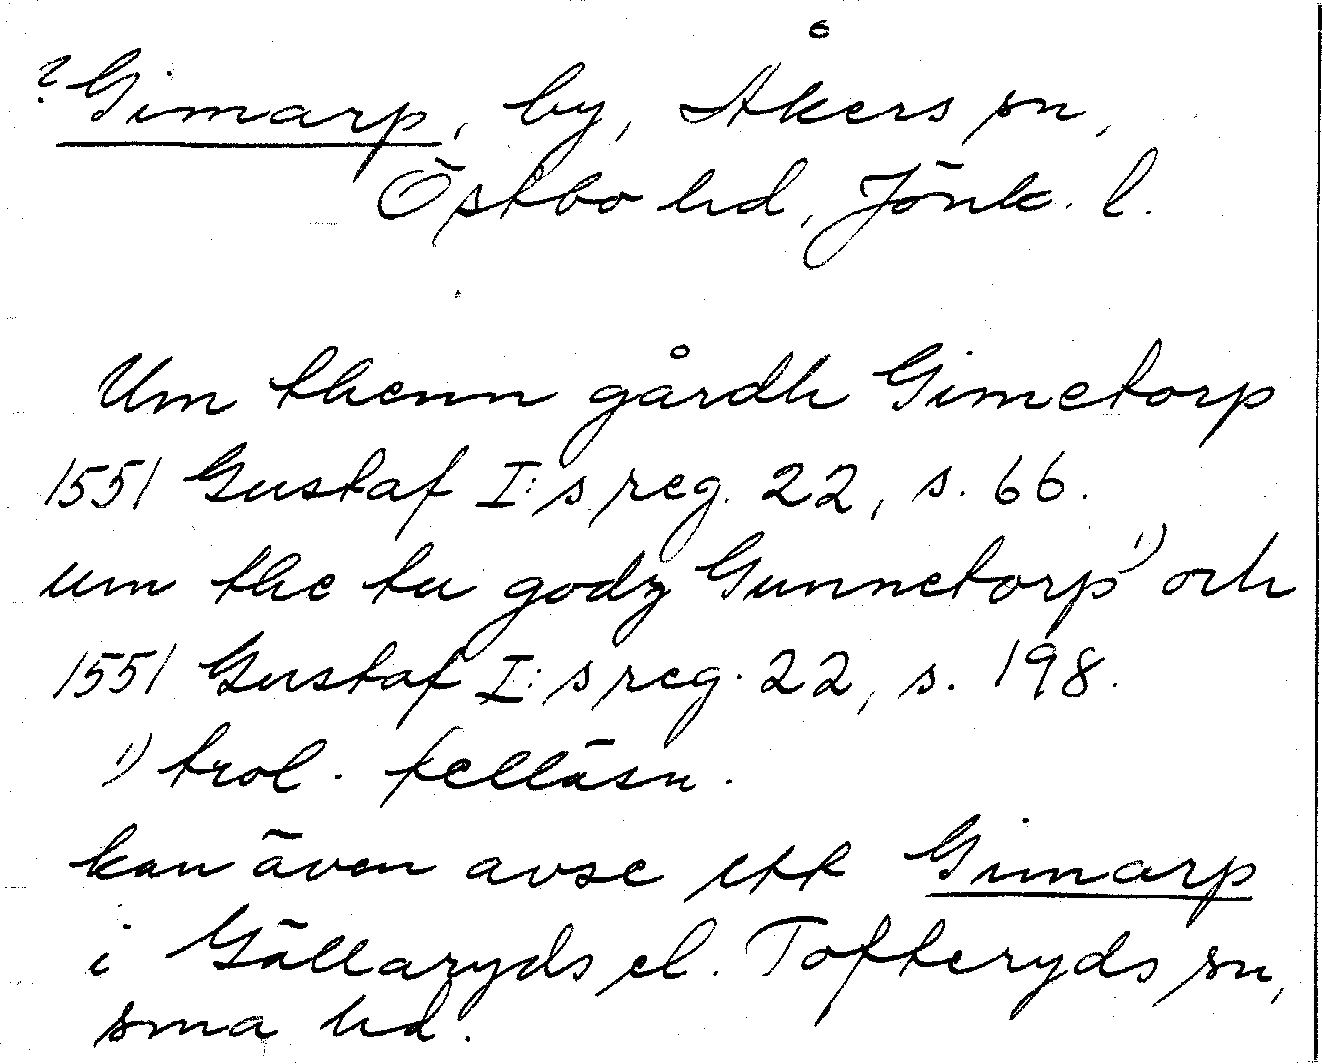 ? Gimarp, by, Åkers sn,
Östbo hd, Jönk. l.
Um thenn gårdh Gimetorp
1551 Gustaf I:s reg. 22, s. 66.
um the tu godz Gunnetorp¹⁾ och
1551 Gustaf I:s reg. 22, s. 198.
¹⁾ trol. felläsn.
kan även avse ett Gimarp
i Gällaryds el. Tofteryds sn,
sma hd.